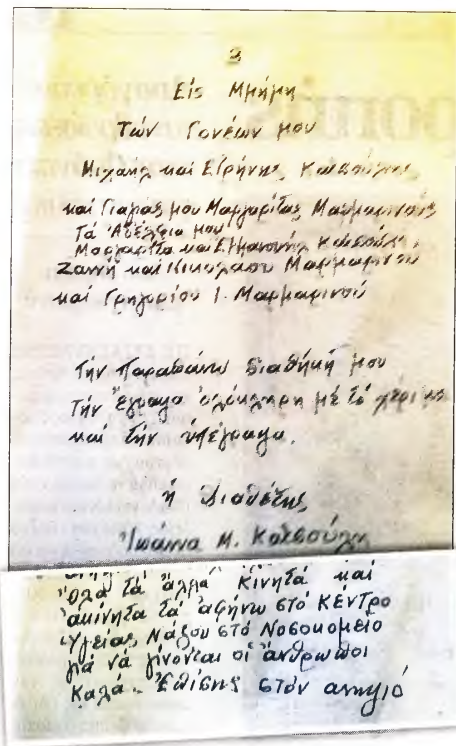 3
Είς Μνήμη
Τών Γονέων μου
Μιχαήλ και Είρήνης Κατσούλη
και Γιαγιάς μου Μαργαρίτας Μαρμαρινού
Τά Άδέλφια μου
Μαργαρίτα και Έμμανουήλ Κατσούλη,
Ζαννή και Νικολάου Μαρμαρινού
και Γρηγορίου Ι. Μαρμαρινού
Τήν Παραπάνω διαθήκη μου
Τήν Έγραψα όλόκληρη μέ τό χέρι μου
και τήν ύπέγραψα.
ή Διαθέτης
Ίωάννα Μ. Κατσούλη
Όλα τά άλλα κινητά και
άκίνητα τά άφήνω στό Κέντρο
Υγείας Νάξου στό Νοσοκομείο
γιά νά γίνονται οί άνθρωποι
καλά. Έπίσης στόν ανηψιό